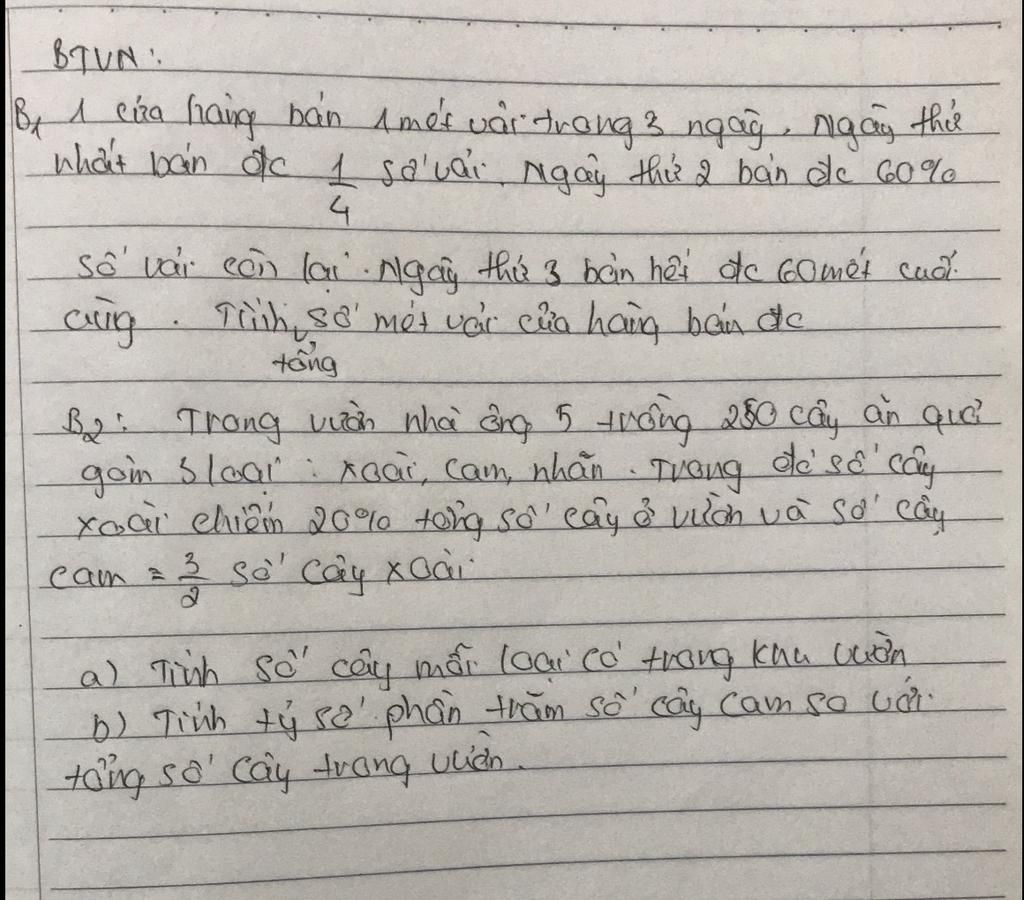 BTVN:
B1 1 cửa hàng bán 1 mét vải trong 3 ngày. Ngày thứ
nhất bán đc 1/4 số vải. Ngày thứ 2 bán đc 60%
số vải còn lại. Ngày thứ 3 bán hết đc 60 mét cuối
cùng. Tính tổng số mét vải cửa hàng bán đc
B2: Trong vườn nhà ông 5 trồng 250 cây ăn quả
gồm 3 loại: xoài, cam, nhãn. Trong đó số cây
xoài chiếm 20% tổng số cây ở vườn và số cây
cam = 3/2 số cây xoài
a) Tính số cây mỗi loại có trong khu vườn
b) Tính tỷ số phần trăm số cây cam so với
tổng số cây trong vườn.